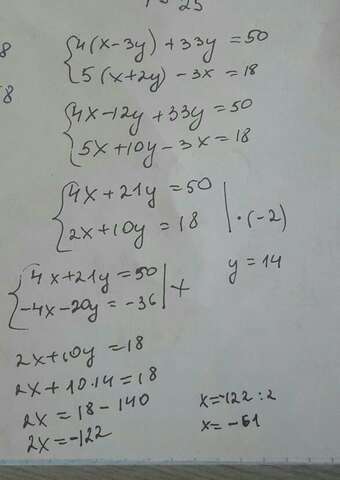 25
8
58
4(x-3y) + 33y = 50
5(x+2y) - 3x = 18
4x-12y + 33y = 50
5x+10y - 3x = 18
4x + 21y = 50
2x + 10y = 18 | · (-2)
4x+21y = 50
-4x-20y = -36 | +
y = 14
2x+10y = 18
2x + 10·14 = 18
2x = 18 - 140
2x = -122
x = -122 : 2
x = -61